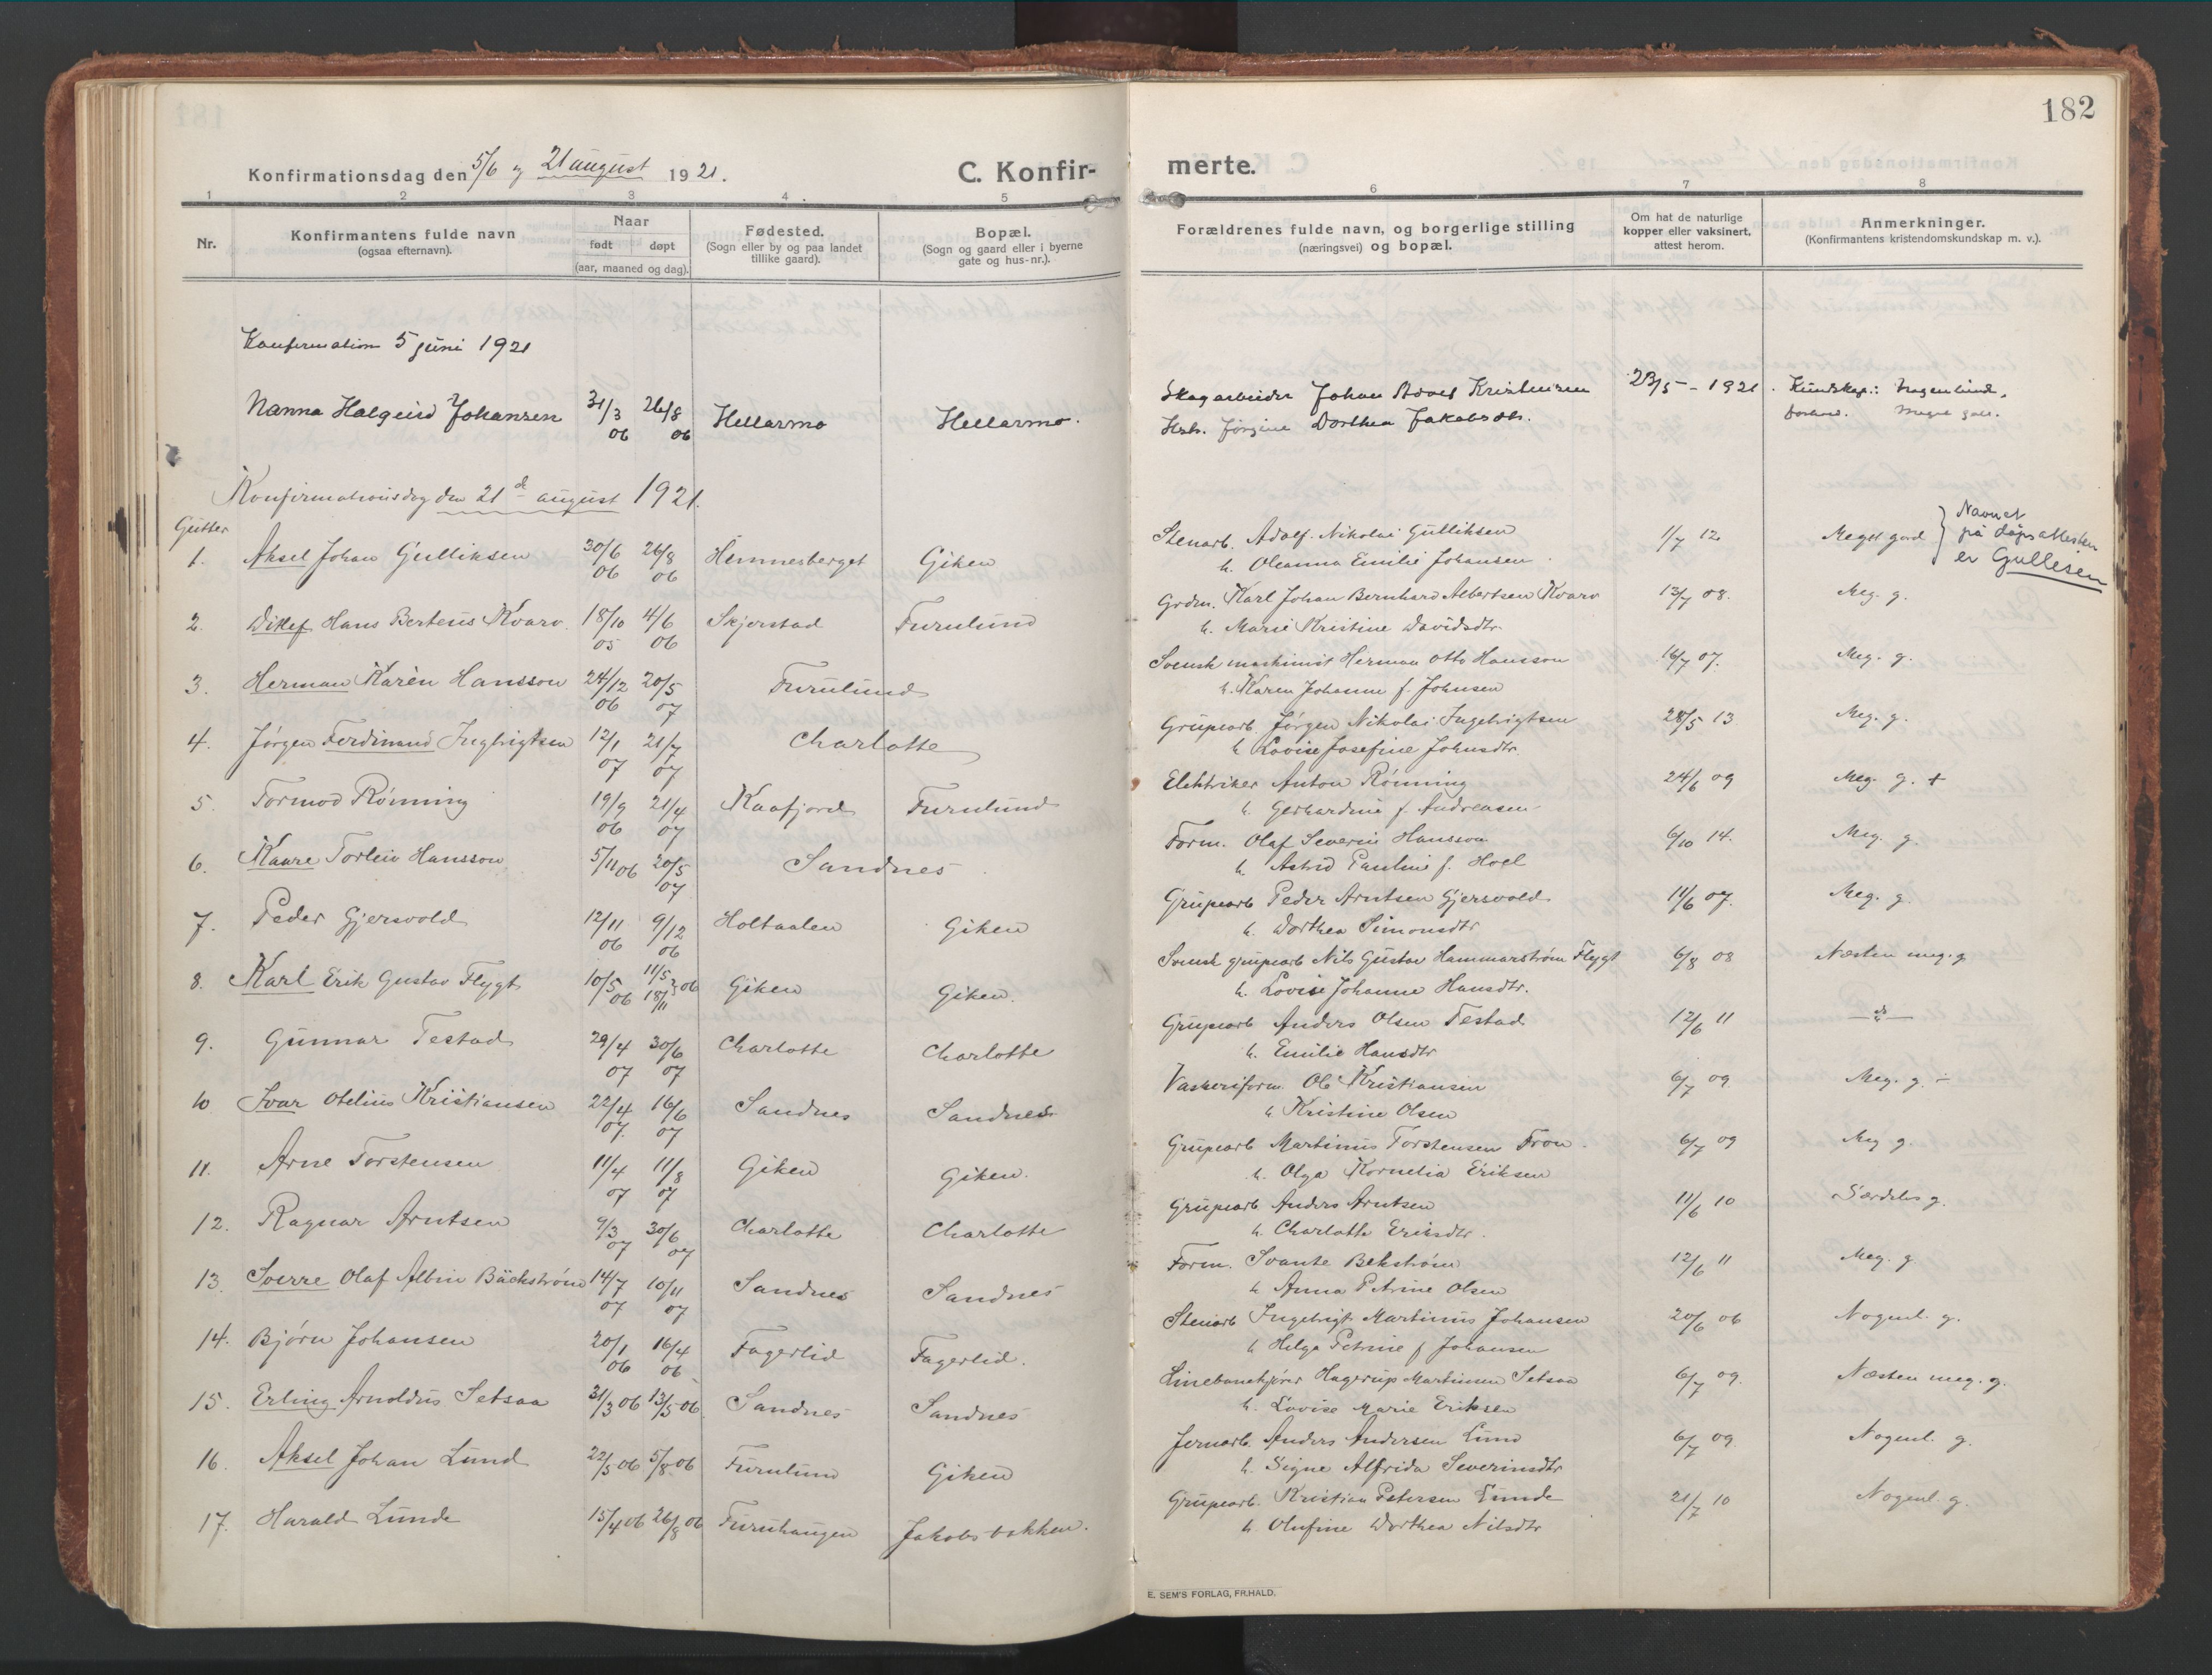 182
Konfirmationsdag den 5/6 g 21 august 1921.
C. Konfir-
merte.
1 2 3 4 5 6 7 8
Nr.
Konfirmantens fulde navn
(ogsaa efternavn).
Naar
født døpt
(aar, maaned og dag).
Fødested.
(Sogn eller by og paa landet
tillike gaard).
Bopæl.
(Sogn og gaard eller i byerne
gate og hus-nr.).
Forældrenes fulde navn, og borgerlige stilling
(næringsvei) og bopæl.
Om hat de naturlige
kopper eller vaksinert,
attest herom.
Anmerkninger.
(Konfirmantens kristendomskundskap m. v.).
Konfirmation 5 juni 1921
Nanna Halgeird Johansen 31/3 06 26/8 06 Hellarmo Hellarmo. Skogarbeider Johan Adolf Kristensen 23/5 - 1921. Kundskap: Nogenlund.
Hstr. Jørgine Dorthea Jakobsdtr. forhold. Meget godt.
Konfirmationsdag den 21de august 1921.
Gutter
1. Aksel Johan Gulliksen 30/6 06 26/8 06 Hemnesberget Giken Stenarb. Adolf Nikolai Gulliksen 1/7 12 Meget god } Navnet
på dåpsattesten
er Gullesen
h. Oleanna Emilie Johansen.
2. Ditlef Hans Berteus Kvarv. 18/10 05 4/6 06 Skjerstad Furulund Grdm. Karl Johan Bernhard Albertsen Kvarv 13/7 08. Meg. g.
h. Marie Kristine Davidsdtr.
3. Herman Karén Hansson 24/12 06 20/5 07 Furulund Svensk maskinist Herman Otto Hansson 16/7 07. Meg. g.
h. Karen Johanne f. Johnsen
4. Jørgen Ferdinand Ingebrigtsen 12/1 07 21/7 07 Charlotte Grupearb. Jørgen Nikolai Ingebrigtsen 28/5 13. Meg. g.
h. Lovise Josefine Johnsdtr.
5. Tormod Rönning 19/9 06 21/4 07 Kaafjord Furulund Elektriker Anton Rönning 24/6 09 Meg. g. +
h. Gerhardine f. Andreasen
6. Kaare Torleiv Hansson 5/11 06 20/5 07 Sandnes Form. Olaf Severin Hansson 6/10 14. Meg. g.
h. Astrid Pauline f. Hoel
7. Peder Gjersvold 12/11 06 9/12 06 Holtaalen Giken Grupearb Peder Arntsen Gjersvold 11/6 07. Meg. g.
h. Dorthea Simonsdtr
8. Karl Erik Gustav Flygt 10/5 06 11/5 18/11 } 06 Giken Giken. Svensk grupearb Nils Gustav Hammarström Flygt 6/8 08 Næsten meg. g.
h. Lovise Johanne Hansdtr.
9. Gunnar Testad 29/4 07 30/6 07 Charlotte Charlotte Grupearb Anders Olsen Testad 12/6 11 — " —
h. Emilie Hansdtr
10 Ivar Otelius Kristiansen 22/4 07. 16/6 07 Sandnes Sandnes Vaskeriform. Ole Kristiansen 6/7 09 Meg. g. ÷
h Kristine Olsen
11. Arne Torstensen 11/4 07 11/8 07 Giken Giken. Grupearb Martinus Torstensen Tron. 6/7 09 Meg g.
h. Olga Kornelia Eriksen
12. Ragnar Arntsen 9/3 07 30/6 07 Charlotte Charlotte Grupearb Anders Arntsen 11/6 10 Særdeles g.
h. Charlotte Eriksdtr.
13. Sverre Olaf Albin Bäckström 14/7 07 10/11 07 Sandnes Sandnes Form. Svante Bekström 12/6 11 Meg. g
h Anna Petrine Olsen
14. Bjørn Johansen 20/1 06 16/4 06 Fagerlid Fagerlid. Stenarb Ingebrigt Martinus Johansen 20/6 06 Nogenl. g.
h Helga Petrine f Johansen
15. Erling Arnoldus Setsaa 31/3 06 13/5 06 Sandnes Sandnes Linebanekjører Hagerup Martinsen Setsaa 6/7 09. Næsten meg. g.
h. Lovise Marie Eriksen
16. Aksel Johan Lund 22/5 06 5/8 06 Furulund Giken Jernarb. Anders Andersen Lund 6/7 09. Nogenl. g.
h. Signe Alfrida Severinsdtr
17. Harald Lunde 15/4 06 26/8 06 Furuhaugen Jakobsbakken. Grupearb. Kristian Petersen Lunde 21/7 10 Nogenl. g.
h. Olufine Dorthea Nilsdtr
E. SEM'S FORLAG, FR.HALD.